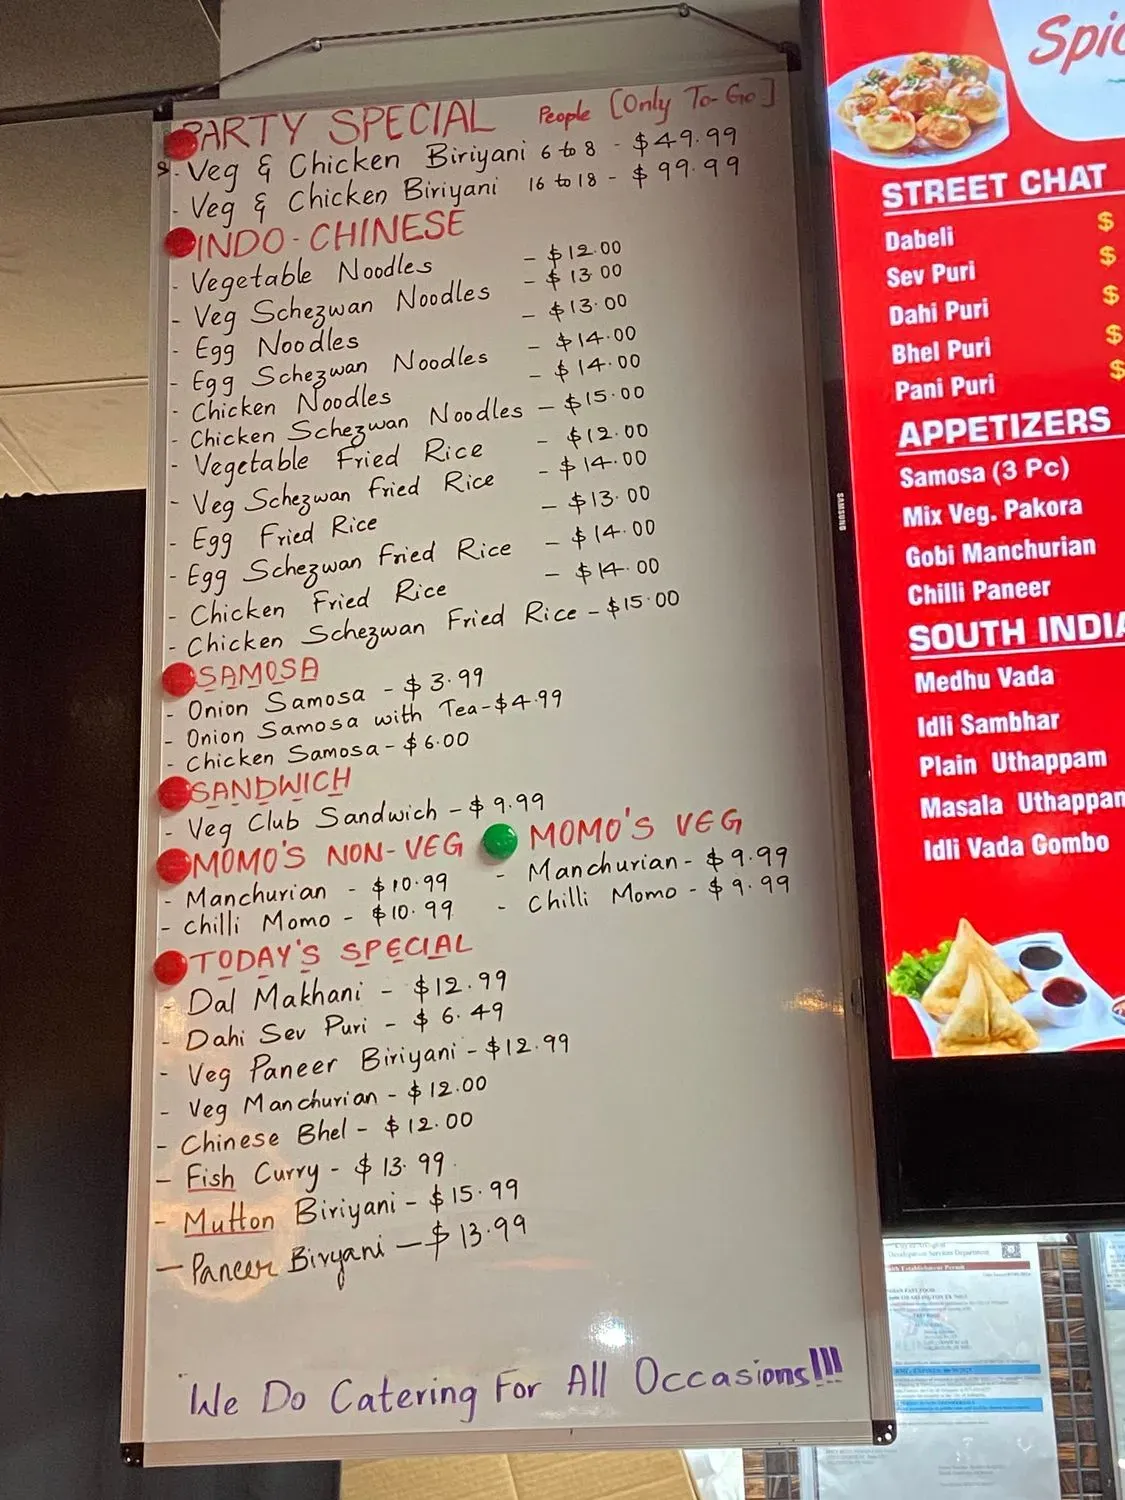 PARTY SPECIAL People [Only To-Go]
- Veg & Chicken Biriyani 6 to 8 - $49.99
- Veg & Chicken Biriyani 16 to 18 - $99.99
INDO-CHINESE
- Vegetable Noodles - $12.00
- Veg Schezwan Noodles - $13.00
- Egg Noodles - $13.00
- Egg Schezwan Noodles - $14.00
- Chicken Noodles - $14.00
- Chicken Schezwan Noodles - $15.00
- Vegetable Fried Rice - $12.00
- Veg Schezwan Fried Rice - $14.00
- Egg Fried Rice - $13.00
- Egg Schezwan Fried Rice - $14.00
- Chicken Fried Rice - $14.00
- Chicken Schezwan Fried Rice - $15.00
SAMOSA
- Onion Samosa - $3.99
- Onion Samosa with Tea - $4.99
- Chicken Samosa - $6.00
SANDWICH
- Veg Club Sandwich - $9.99
MOMO'S NON-VEG
- Manchurian - $10.99
- Chilli Momo - $10.99
MOMO'S VEG
- Manchurian - $9.99
- Chilli Momo - $9.99
TODAY'S SPECIAL
- Dal Makhani - $12.99
- Dahi Sev Puri - $6.49
- Veg Paneer Biriyani - $12.99
- Veg Manchurian - $12.00
- Chinese Bhel - $12.00
- Fish Curry - $13.99
- Mutton Biriyani - $15.99
- Paneer Biryani - $13.99
We Do Catering For All Occasions!!!
SAMSUNG
Spic
STREET CHAT
Dabeli $
Sev Puri $
Dahi Puri $
Bhel Puri $
Pani Puri $
APPETIZERS
Samosa (3 Pc)
Mix Veg. Pakora
Gobi Manchurian
Chilli Paneer
SOUTH INDIA
Medhu Vada
Idli Sambhar
Plain Uthappam
Masala Uthappam
Idli Vada Gombo
Development Services Department
Establishment Permit